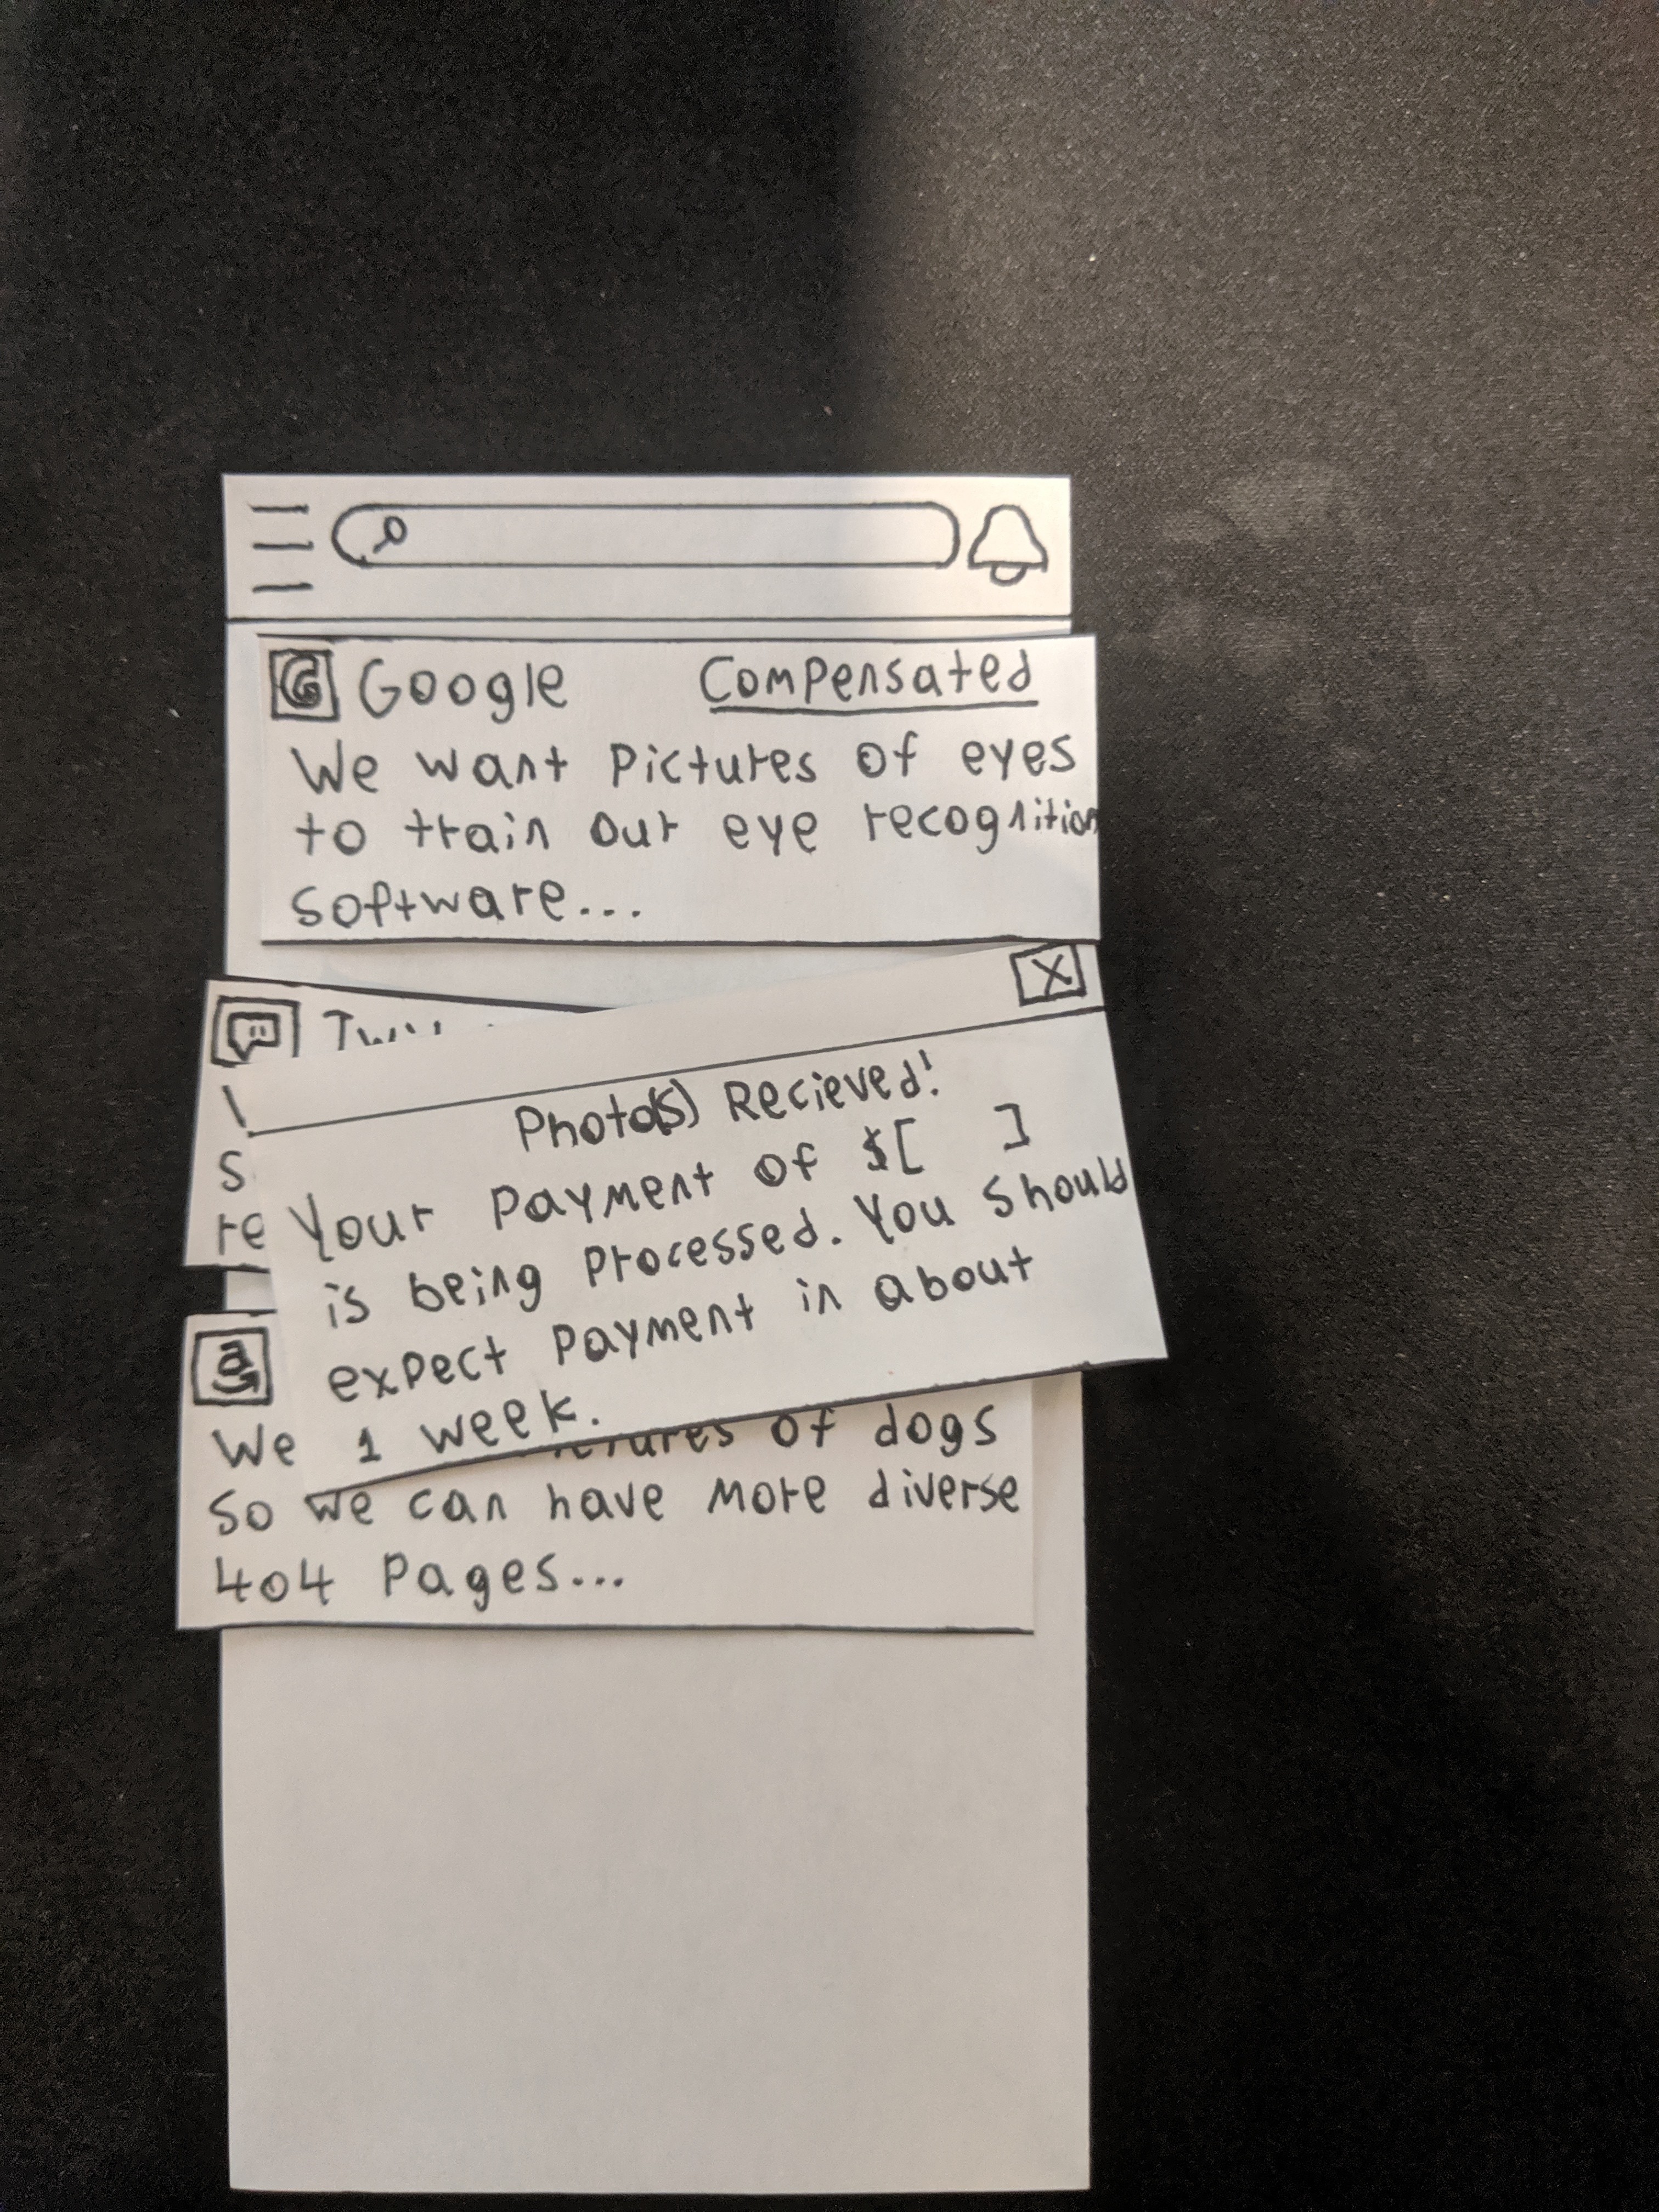 Google Compensated
We want Pictures of eyes
to train our eye recognition
software...
Photo(s) Recieved!
Your Payment of $[ ]
is being Processed. You should
expect Payment in about
1 week.
We of dogs
So we can have more diverse
404 Pages...